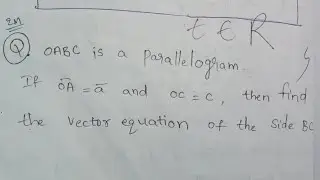 t ∈ R
Ex
Q. OABC is a parallelogram.
If O̅A̅ = a̅ and OC = C, then find
the vector equation of the side BC